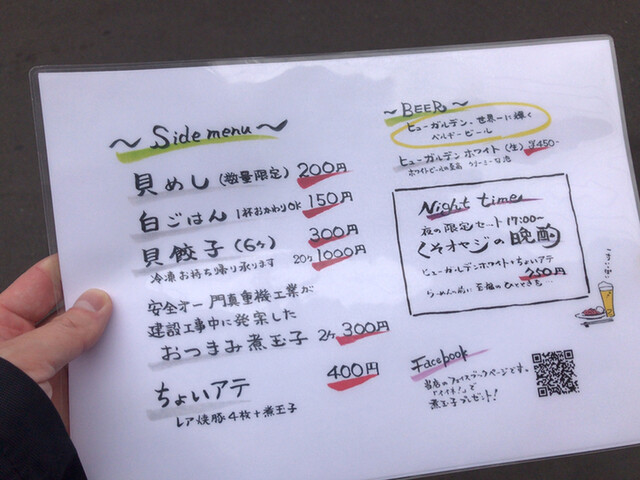 ～ Side menu ～
貝めし（数量限定） 200円
白ごはん 1杯おかわりOK 150円
貝餃子（6ヶ） 300円
冷凍お持ち帰り承ります 20ヶ 1000円
安全オー門真重機工業が
建設工事中に発案した
おつまみ煮玉子 2ヶ 300円
ちょいアテ 400円
レア焼豚4枚+煮玉子
～ BEER ～
ヒューガルデン、世界一に輝く
ベルギービール
ヒューガルデン ホワイト（生） ¥450-
ホワイトビールの最高 クリーミーな泡
Night time
夜の限定セット 17:00～
くそオヤジの晩酌
ヒューガルデンホワイト+ちょいアテ
750円
らーめんの前に 至福のひととき
Facebook
当店のフェイスブックページです。
「イイネ!」で
煮玉子プレゼント!